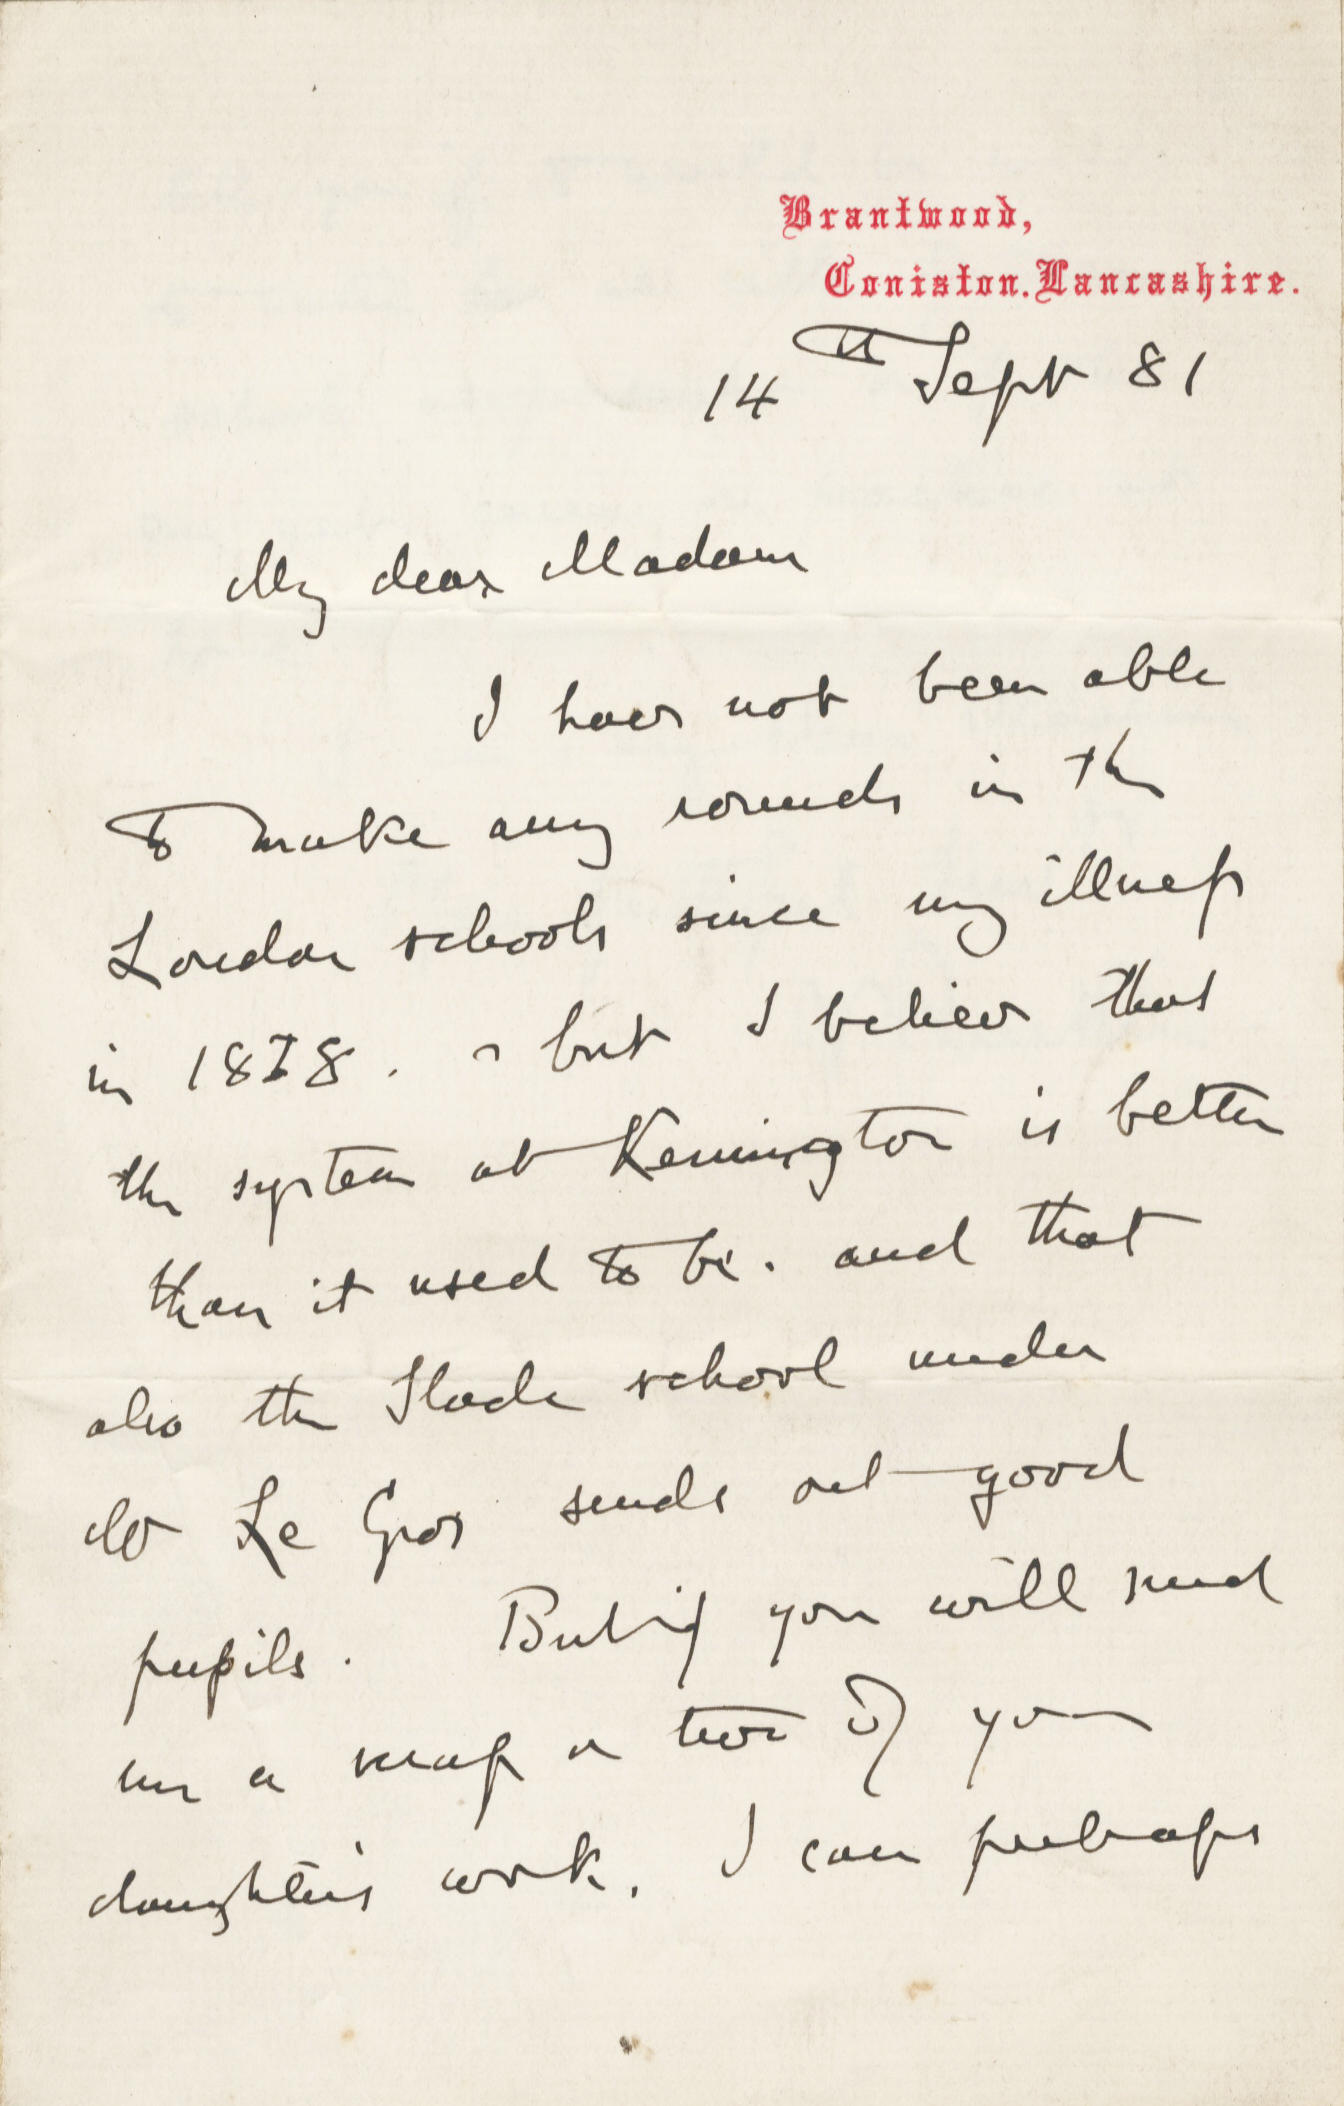 Brantwood,
Coniston. Lancashire.
14th Sept 81
My dear Madam
I have not been able
to make any rounds in the
London schools since my illness
in 1878. - but I believe that
the system at Kensington is better
than it used to be. and that
also the Slade school under
Mr Le Gros sends out good
pupils. But if you will send
me a scrap or two of your
daughter's work, I can perhaps